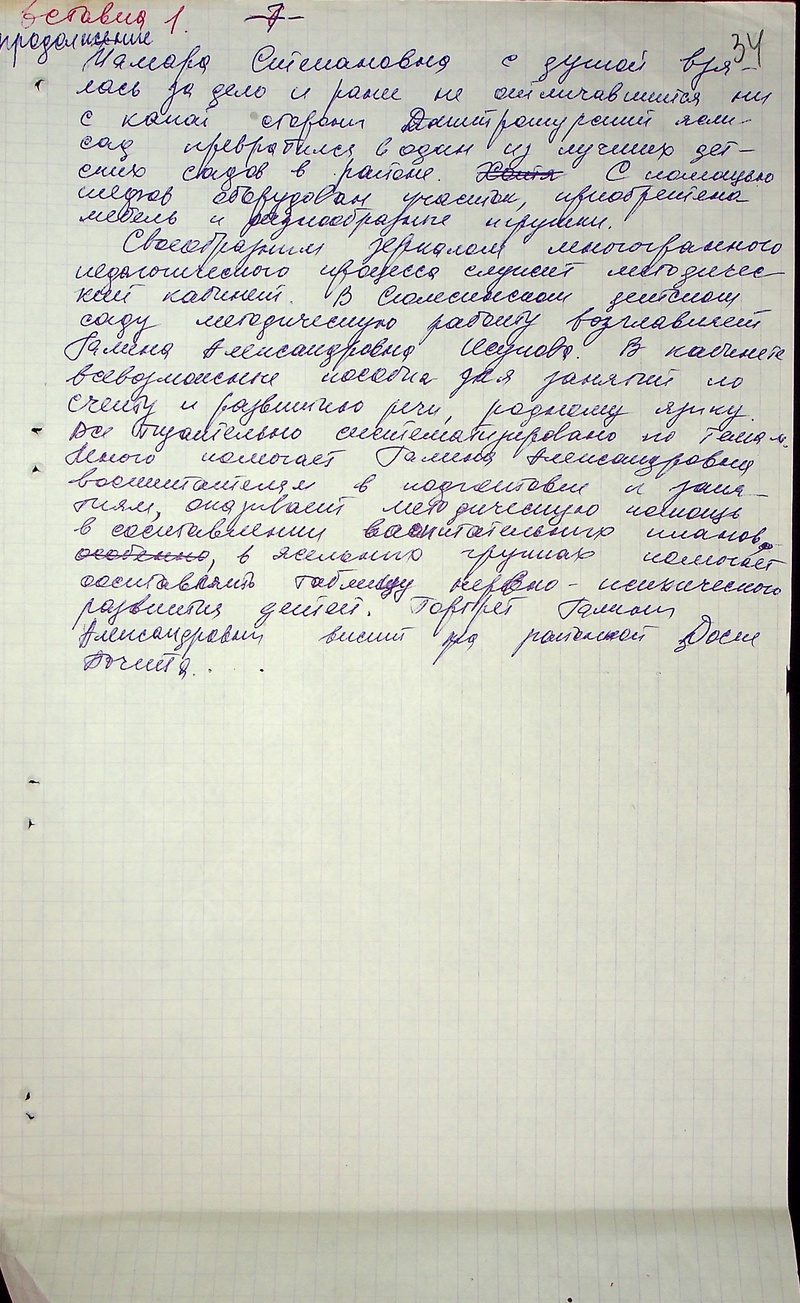 вставка 1. -7-
продолжение 34
Тамара Степановна с душой взя-
лась за дело и ранее не отличавшийся ни
с какой стороны ясли-
сад превратился в один из лучших дет-
ских садов в районе. Хотя С помощью
шефов оборудован участок, приобретена
мебель и разнообразные игрушки.
Своеобразным зеркалом многогранного
педагогического процесса служит методичес-
кий кабинет. В детском
саду методическую работу возглавляет
Галина Александровна Исупова. В кабинете
всевозможные пособия для занятий по
счету и развитию речи, родному языку.
Все тщательно систематизировано по темам.
Много помогает Галина Александровна
воспитателям в подготовке к заня-
тиям, оказывает методическую помощь
в составлении воспитательных планов,
особенно, в ясельных группах помогает
составлять таблицу нервно-психического
развития детей. Портрет Галины
Александровны висит на районной Доске
Почета. . . .